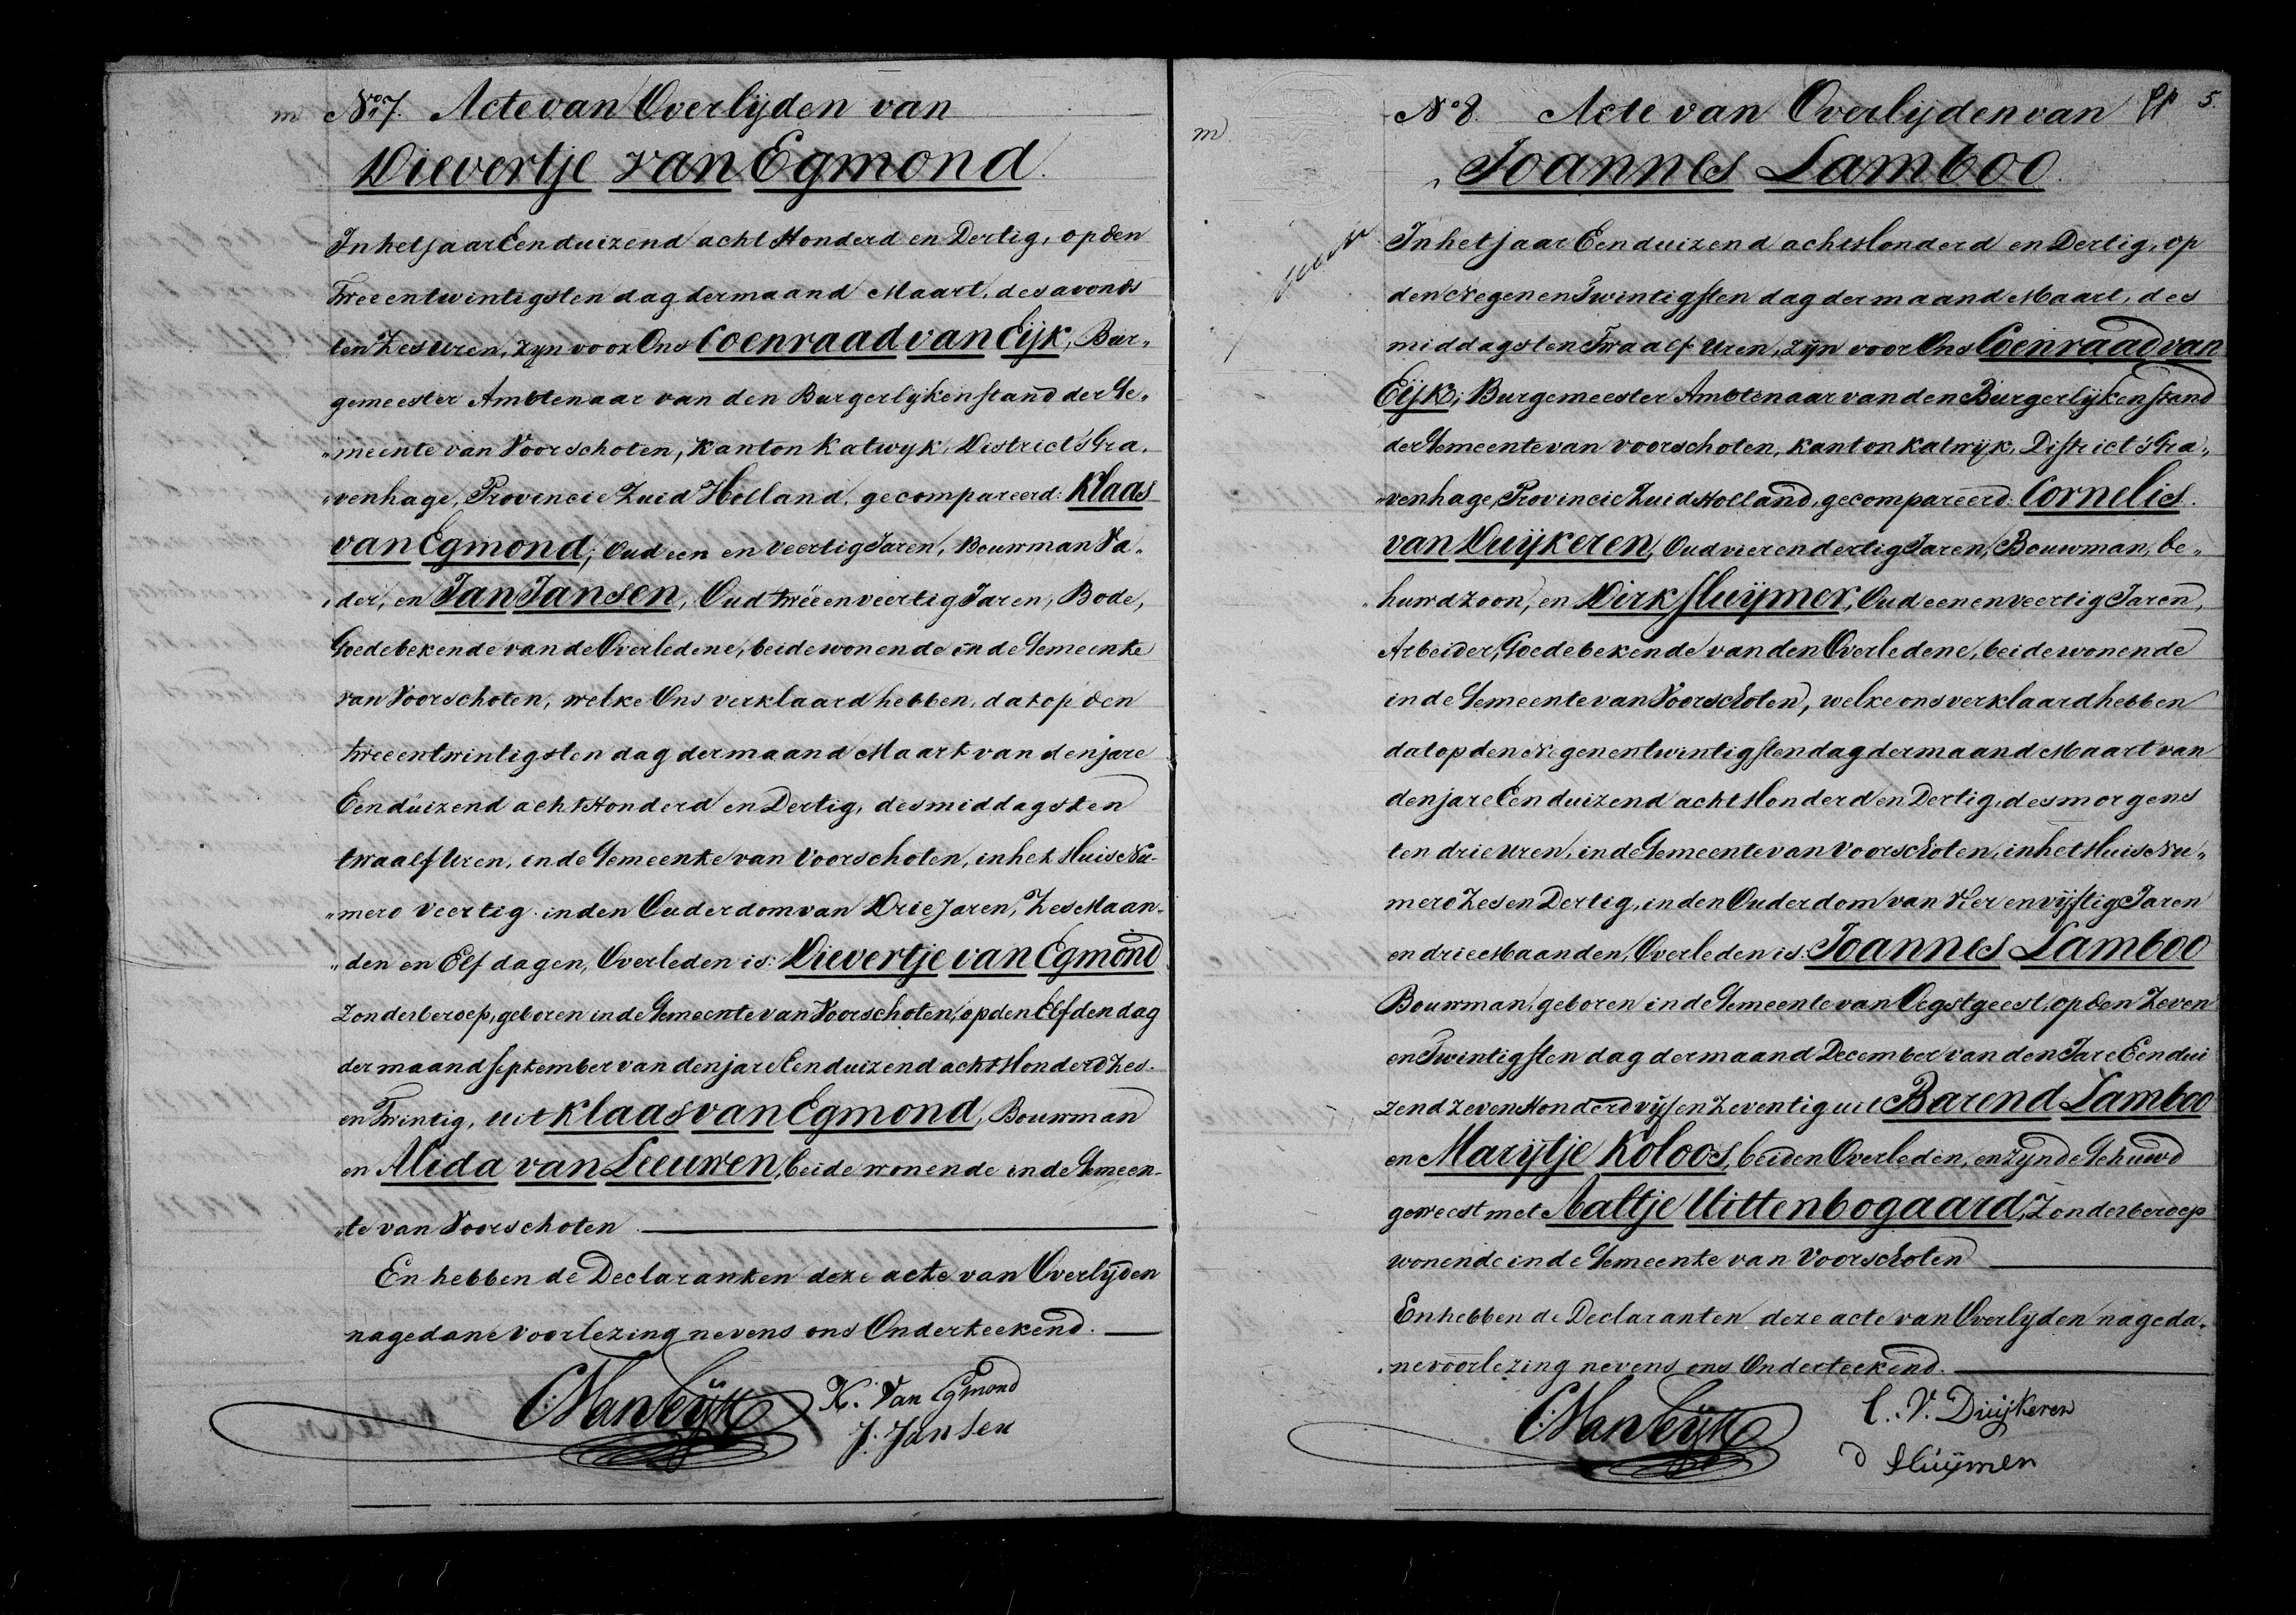 m No 7. Acte van Overlijden van
Dievertje van Egmond.
In het jaar Eenduizend acht Honderd en Dertig, op den
Tweeentwintigsten dag der maand Maart, des avonds
ten Zes uren, zyn voor Ons Coenraad van Eijk, Bur„
gemeester Ambtenaar van den Burgerlykenstand der Ge„
„meente van Voorschoten, Kanton Katwyk, District 's Gra„
„venhage, Provincie Zuid Holland, gecompareerd: Klaas
van Egmond; Oud een en veertig Jaren, Bouwman Va„
„der, en Jan Jansen, Oud tweeenveertig Jaren, Bode,
Goedebekende van de Overledene, beide wonende in de Gemeente
van Voorschoten, welke Ons verklaard hebben, dat op den
tweeentwintigsten dag der maand Maart van den jare
Eenduizend acht Honderd en Dertig, des middags ten
twaalf Uren, in de Gemeente van Voorschoten, in het Huis Nu-
„mero Veertig in den Ouderdom van Drie Jaren, Zes Maan„
„den en Elf dagen, Overleden is: Dievertje van Egmond
Zonder beroep, geboren in de Gemeente van Voorschoten, op den Elfden dag
der maand September van den jare Eenduizend acht Honderd Zes
en Twintig, uit Klaas van Egmond, Bouwman
en Alida van Leeuwen, beide wonende in de Gemeen-
„te van Voorschoten
En hebben de Declaranten deze acte van Overlyden
na gedane voorlezing nevens ons Onderteekend.
CVanEijk K. Van Egmond
J. Jansen
m No 8. Acte van Overlijden van 5.
Joannes Lamboo.
In het jaar Eenduizend acht Honderd en Dertig, op
den Negen en Twintigsten dag der maand Maart, des
middags ten Twaalf Uren, zijn voor Ons Coenraad van
Eijk; Burgemeester Ambtenaar van den Burgerlijken stand
der Gemeente van Voorschoten, Kanton Katwijk, District 's Gra„
„venhage, Provincie Zuid Holland, gecompareerd: Cornelis
van Duijkeren, Oud vierendertig Jaren, Bouwman, be„
„huwdzoon, en Dirk Sluijmer, Oud eenenveertig Jaren,
Arbeider, Goedebekende van den Overledene, beide wonende
in de Gemeente van Voorschoten, welke ons verklaard hebben
dat op den Negenentwintigsten dag der maand Maart van
den jare Eenduizend acht Honderd en Dertig, des morgens
ten drie uren, in de Gemeente van Voorschoten, in het Huis Nu„
mero Zes en Dertig, in den Ouderdom van Vier en vijftig Jaren
en drie Maanden, Overleden is: Joannes Lamboo
Bouwman, geboren in de Gemeente van Oegstgeest, op den Zeven
en Twintigsten dag der maand December van den Jare Eendui
zend Zeven Honderd vijf en Zeventig uit Barend Lamboo
en Marijtje Koloos, beiden Overleden, en zynde Gehuwd
geweest met Aaltje Uittenbogaard, Zonder beroep
wonende in de Gemeente van Voorschoten
En hebben de Declaranten deze acte van Overlyden na geda„
„ne voorlezing nevens ons Onderteekend.
CVanEijk C. V. Duijkeren
D Sluijmer